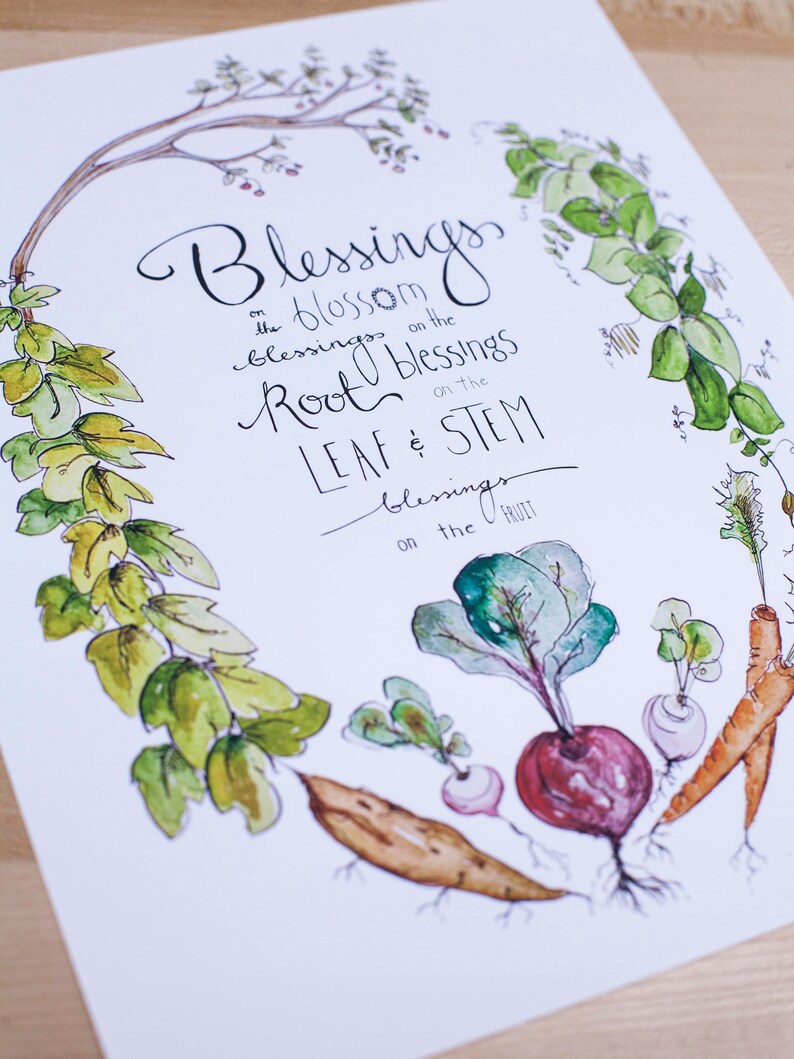 Blessings
on the blossom
blessings on the
Root blessings
on the
LEAF & STEM
blessings
on the FRUIT